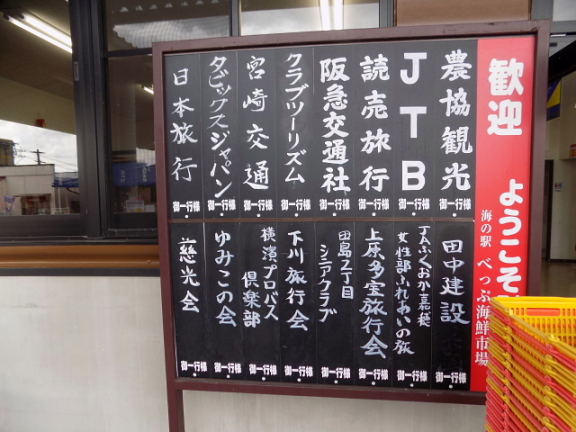 歓迎
ようこそ
海の駅
べっぷ海鮮市場
農協観光
御一行様
JTB
御一行様
読売旅行
御一行様
阪急交通社
御一行様
クラブツーリズム
御一行様
宮崎交通
御一行様
タビックスジャパン
御一行様
日本旅行
御一行様
田中建設
御一行様
JAふくおか嘉穂
女性部ふれあいの旅
御一行様
上原多宝旅行会
御一行様
田島2丁目
シニアクラブ
御一行様
下川旅行会
御一行様
横濱プロバス
倶楽部
御一行様
ゆみこの会
御一行様
慈光会
御一行様